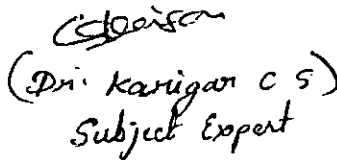 (Dr. Karigar C S)
Subject Expert